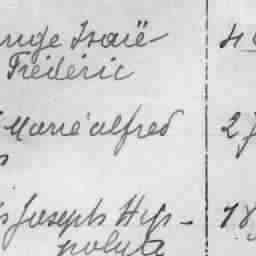 nge Isaïe 4
Frédéric
Marie alfred 2
s Joseph Hip- 18
polyte